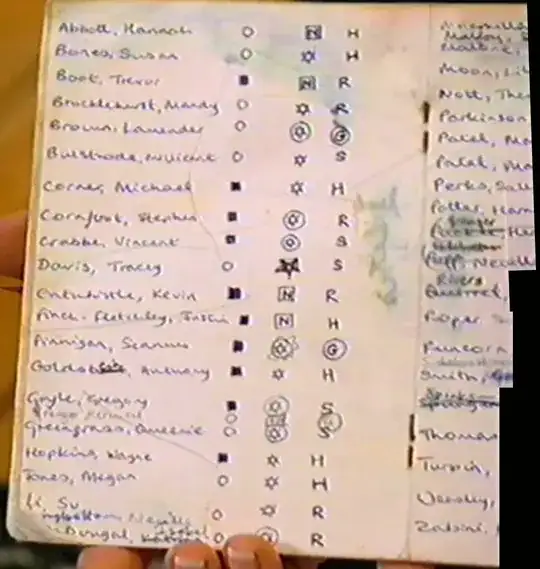 Abbott, Hannah N H
Bones, Susan H
Boot, Trevor N R
Brocklehurst, Mandy R
Brown, Lavender G
Bulstrode, Millicent S
Corner, Michael H
Cornfoot, Stephen R
Crabbe, Vincent S
Davis, Tracey S
Entwhistle, Kevin N R
Finch-Fletchley, Justin N H
Finnigan, Seamus G
Anthony H
Goyle, Gregory S
Greengrass, Queenie S
Hopkins, Wayne H
Jones, Megan H
Li, Su R
R
Malfoy,
Malone,
Moon, Li
Nott, The
Parkinson
Patel, Ma
Patel, Ma
Perks, Sall
Potter, Harr
Granger
Puff, Nevill
Rivers
Roper, S
Runcorn
Smith,
Spinks
Thomas
Turpin,
Weasley,
Zabini,